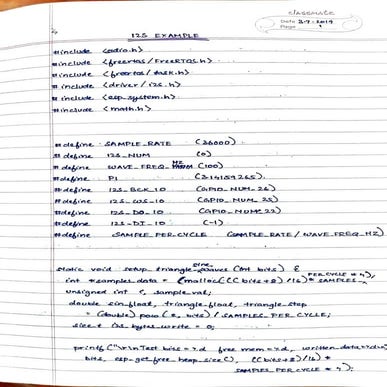 classmate
Date 3-7-2019
Page
I2S EXAMPLE
#include <stdio.h>
#include <freertos/FreeRTOS.h>
#include <freertos/task.h>
#include <driver/i2s.h>
#include <esp_system.h>
#include <math.h>
#define SAMPLE_RATE (36000)
#define I2S_NUM (0)
#define WAVE_FREQ_HZ (100)
#define PI (3.14159265)
#define I2S_BCK_IO (GPIO_NUM_26)
#define I2S_WS_IO (GPIO_NUM_25)
#define I2S_DO_IO (GPIO_NUM_22)
#define I2S_DI_IO (-1)
#define SAMPLE_PER_CYCLE (SAMPLE_RATE / WAVE_FREQ_HZ)
static void setup_triangle_sine_waves (int bits) {
int *samples_data = (malloc(((bits+8)/16)* SAMPLES_PER_CYCLE * 4);
unsigned int i, sample_val;
double sin_float, triangle_float, triangle_step
= (double) pow(2, bits) / SAMPLES_PER_CYCLE;
size_t i2s_bytes_write = 0;
printf("\r\nTest bits=%d free mem=%d, written data=%d\n",
bits, esp_get_free_heap_size(), ((bits+8)/16)*
SAMPLES_PER_CYCLE * 4);